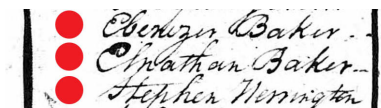 Ebenezer Baker
Elnathan Baker
Stephen Herrington